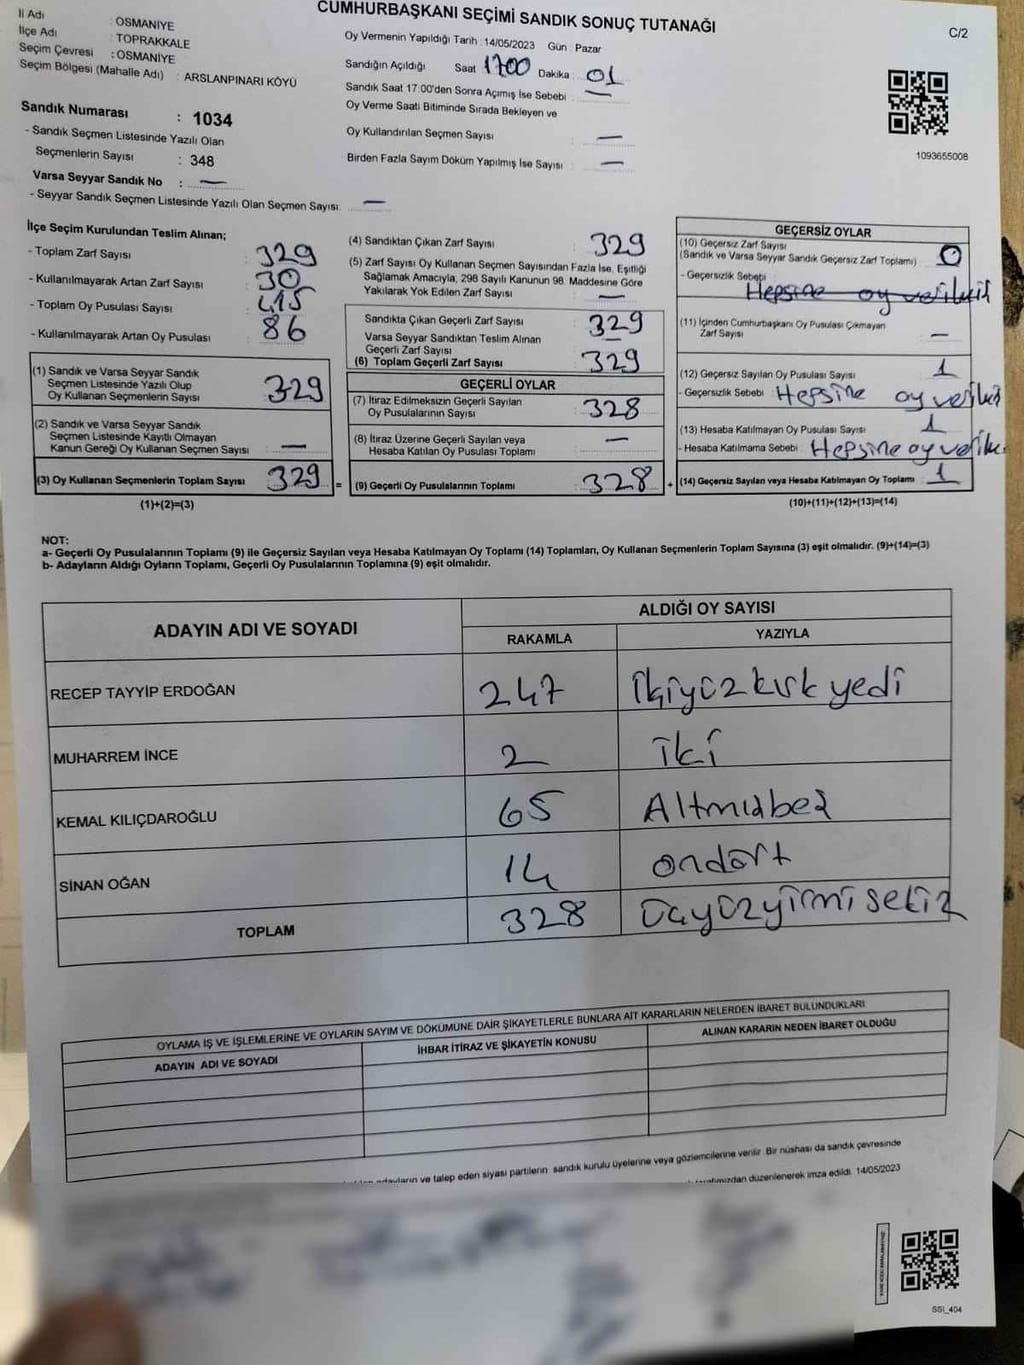 CUMHURBAŞKANI SEÇİMİ SANDIK SONUÇ TUTANAĞI
C/2
İl Adı : OSMANİYE
İlçe Adı : TOPRAKKALE
Seçim Çevresi : OSMANİYE
Seçim Bölgesi (Mahalle Adı) : ARSLANPINARI KÖYÜ
Sandık Numarası : 1034
- Sandık Seçmen Listesinde Yazılı Olan
Seçmenlerin Sayısı : 348
Varsa Seyyar Sandık No : —
- Seyyar Sandık Seçmen Listesinde Yazılı Olan Seçmen Sayısı: —
Oy Vermenin Yapıldığı Tarih : 14/05/2023 Gün : Pazar
Sandığın Açıldığı Saat 1700 Dakika : 01
Sandık Saat 17:00'den Sonra Açımış İse Sebebi : —
Oy Verme Saati Bitiminde Sırada Bekleyen ve
Oy Kullandırılan Seçmen Sayısı : —
Birden Fazla Sayım Döküm Yapılmış İse Sayısı : —
1093655008
İlçe Seçim Kurulundan Teslim Alınan;
- Toplam Zarf Sayısı : 329
- Kullanılmayarak Artan Zarf Sayısı : 30
- Toplam Oy Pusulası Sayısı : 415
- Kullanılmayarak Artan Oy Pusulası : 86
(1) Sandık ve Varsa Seyyar Sandık
Seçmen Listesinde Yazılı Olup
Oy Kullanan Seçmenlerin Sayısı : 329
(2) Sandık ve Varsa Seyyar Sandık
Seçmen Listesinde Kayıtlı Olmayan
Kanun Gereği Oy Kullanan Seçmen Sayısı : —
(3) Oy Kullanan Seçmenlerin Toplam Sayısı : 329 =
(1)+(2)=(3)
(4) Sandıktan Çıkan Zarf Sayısı : 329
(5) Zarf Sayısı Oy Kullanan Seçmen Sayısından Fazla İse, Eşitliği
Sağlamak Amacıyla, 298 Sayılı Kanunun 98. Maddesine Göre
Yakılarak Yok Edilen Zarf Sayısı : —
Sandıkta Çıkan Geçerli Zarf Sayısı : 329
Varsa Seyyar Sandıktan Teslim Alınan
Geçerli Zarf Sayısı
(6) Toplam Geçerli Zarf Sayısı : 329
GEÇERLİ OYLAR
(7) İtiraz Edilmeksizin Geçerli Sayılan
Oy Pusulalarının Sayısı : 328
(8) İtiraz Üzerine Geçerli Sayılan veya
Hesaba Katılan Oy Pusulası Toplamı : —
(9) Geçerli Oy Pusulalarının Toplamı : 328 +
GEÇERSİZ OYLAR
(10) Geçersiz Zarf Sayısı
(Sandık ve Varsa Seyyar Sandık Geçersiz Zarf Toplamı) : 0
- Geçersizlik Sebebi
(11) İçinden Cumhurbaşkanı Oy Pusulası Çıkmayan
Zarf Sayısı : —
(12) Geçersiz Sayılan Oy Pusulası Sayısı : 1
- Geçersizlik Sebebi : Hepsine oy
(13) Hesaba Katılmayan Oy Pusulası Sayısı : 1
- Hesaba Katılmama Sebebi : Hepsine oy
(14) Geçersiz Sayılan veya Hesaba Katılmayan Oy Toplamı : 1
(10)+(11)+(12)+(13)=(14)
NOT:
a- Geçerli Oy Pusulalarının Toplamı (9) ile Geçersiz Sayılan veya Hesaba Katılmayan Oy Toplamı (14) Toplamları, Oy Kullanan Seçmenlerin Toplam Sayısına (3) eşit olmalıdır. (9)+(14)=(3)
b- Adayların Aldığı Oyların Toplamı, Geçerli Oy Pusulalarının Toplamına (9) eşit olmalıdır.
ADAYIN ADI VE SOYADI
ALDIĞI OY SAYISI
RAKAMLA YAZIYLA
RECEP TAYYİP ERDOĞAN 247 İkiyüzkırkyedi
MUHARREM İNCE 2 iki
KEMAL KILIÇDAROĞLU 65 Altmışbeş
SİNAN OĞAN 14 ondört
TOPLAM 328 Üçyüzyirmisekiz
OYLAMA İŞ VE İŞLEMLERİNE VE OYLARIN SAYIM VE DÖKÜMÜNE DAİR ŞİKAYETLERLE BUNLARA AİT KARARLARIN NELERDEN İBARET BULUNDUKLARI
ADAYIN ADI VE SOYADI İHBAR İTİRAZ VE ŞİKAYETİN KONUSU ALINAN KARARIN NEDEN İBARET OLDUĞU
adayların ve talep eden siyasi partilerin sandık kurulu üyelerine veya gözlemcilerine verilir. Bir nüshası da sandık çevresinde
tarafımızdan düzenlenerek imza edildi. 14/05/2023
SSİ_404